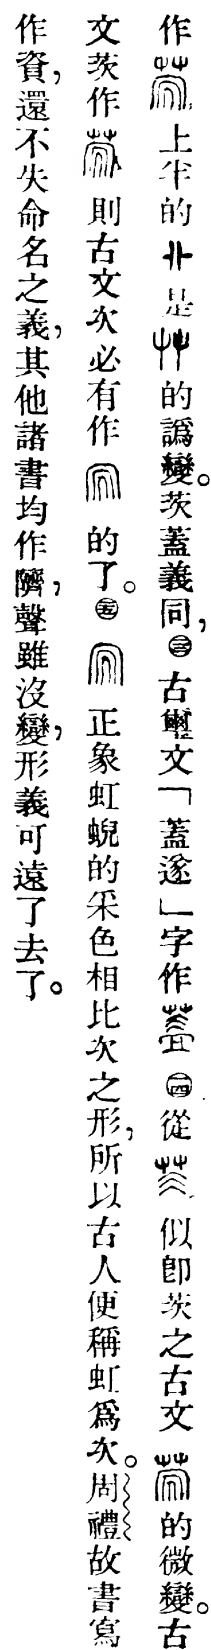 作上半的是艸的譌變。茨蓋義同，古鉨文「蓋遂」字作㊃從似卽茨之古文的微變。古
文茨作則古文次必有作的了。㊄正象虹蜺的采色相比次之形，所以古人便稱虹爲次。周禮故書寫
作資，還不失命名之義，其他諸書均作隮，聲雖沒變，形義可遠了去了。